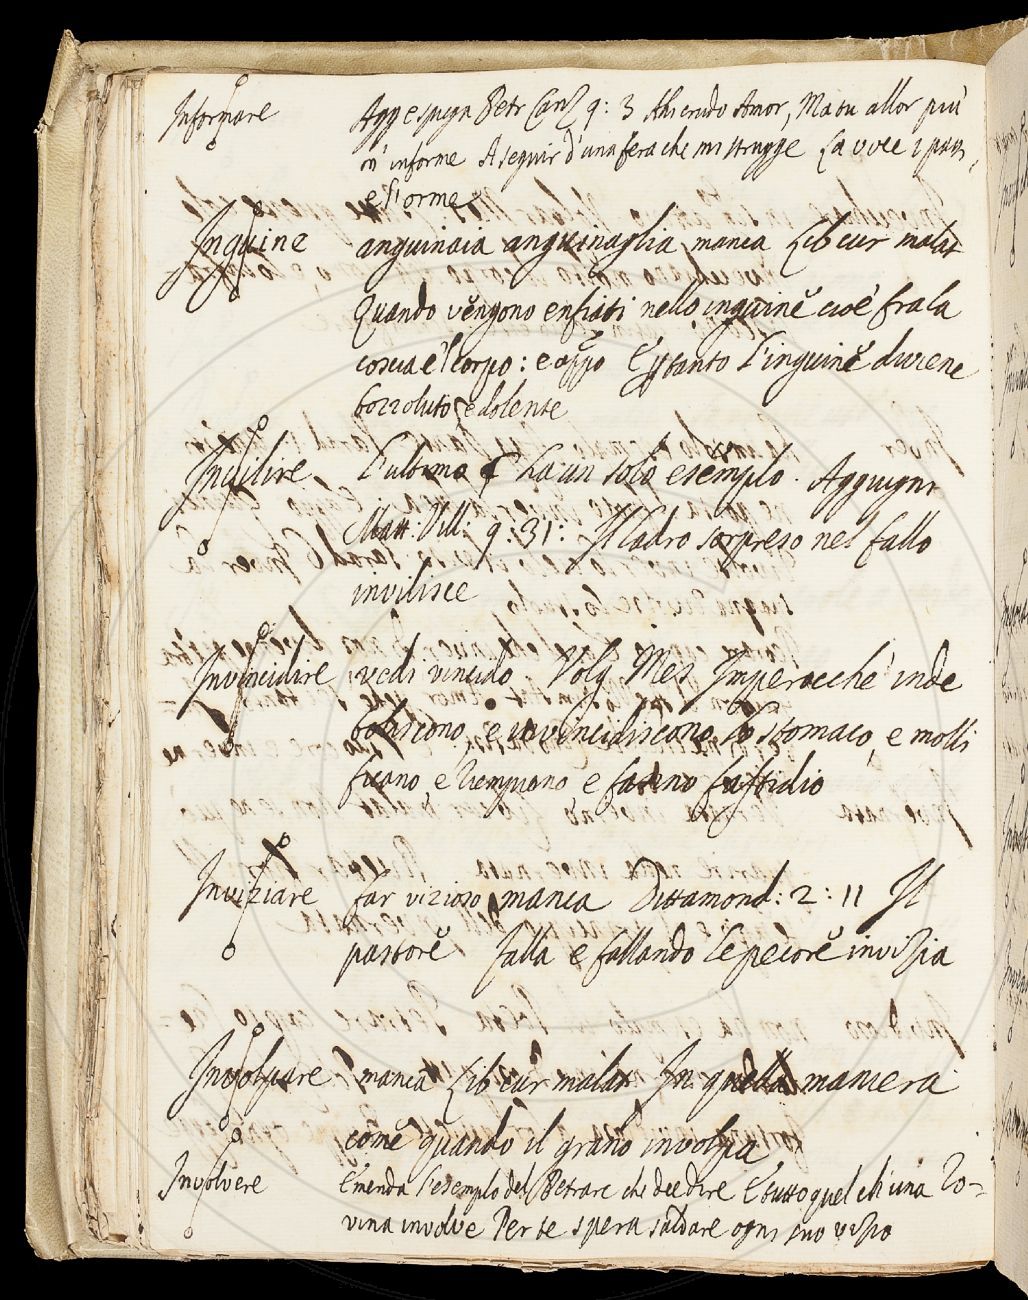 Informare Agg espugn Petr Canz 9: 3 Ahi crudo Amor, Ma tu allor più
m' informe A seguir d'una fera che mi strugge La voce i passi,
e l'orme
Inguine anguinaia anguinaglia manca Lib cur malat
Quando vengono enfiati nello inguine cioè fra la
coscia e 'l corpo: e appo E pertanto l'inguine duri ene
bozzoluto, e dolente
Invilire L'ultimo § ha un solo esempio. Aggiugni
Matt: Vill: 9:31: Il ladro sorpreso nel fallo
invilisce
Invincidire vedi vincido Volg Mes Imperocchè inde
boliscono, e invincidiscono lo stomaco, e molli
ficano, e riempiono, e fanno fastidio
Inviziare far vizioso manca Dittamond: 2: 11 Il
pastore falla e fallando le pecore invizia
Involpare manca Lib cur malat In quella maniera
come quando il grano involpa
Involvere Emenda l'esempio del Petrarc che dee dire E tutto quel ch' una Ro=
vina involve Per te spera saldare ogni suo vizio